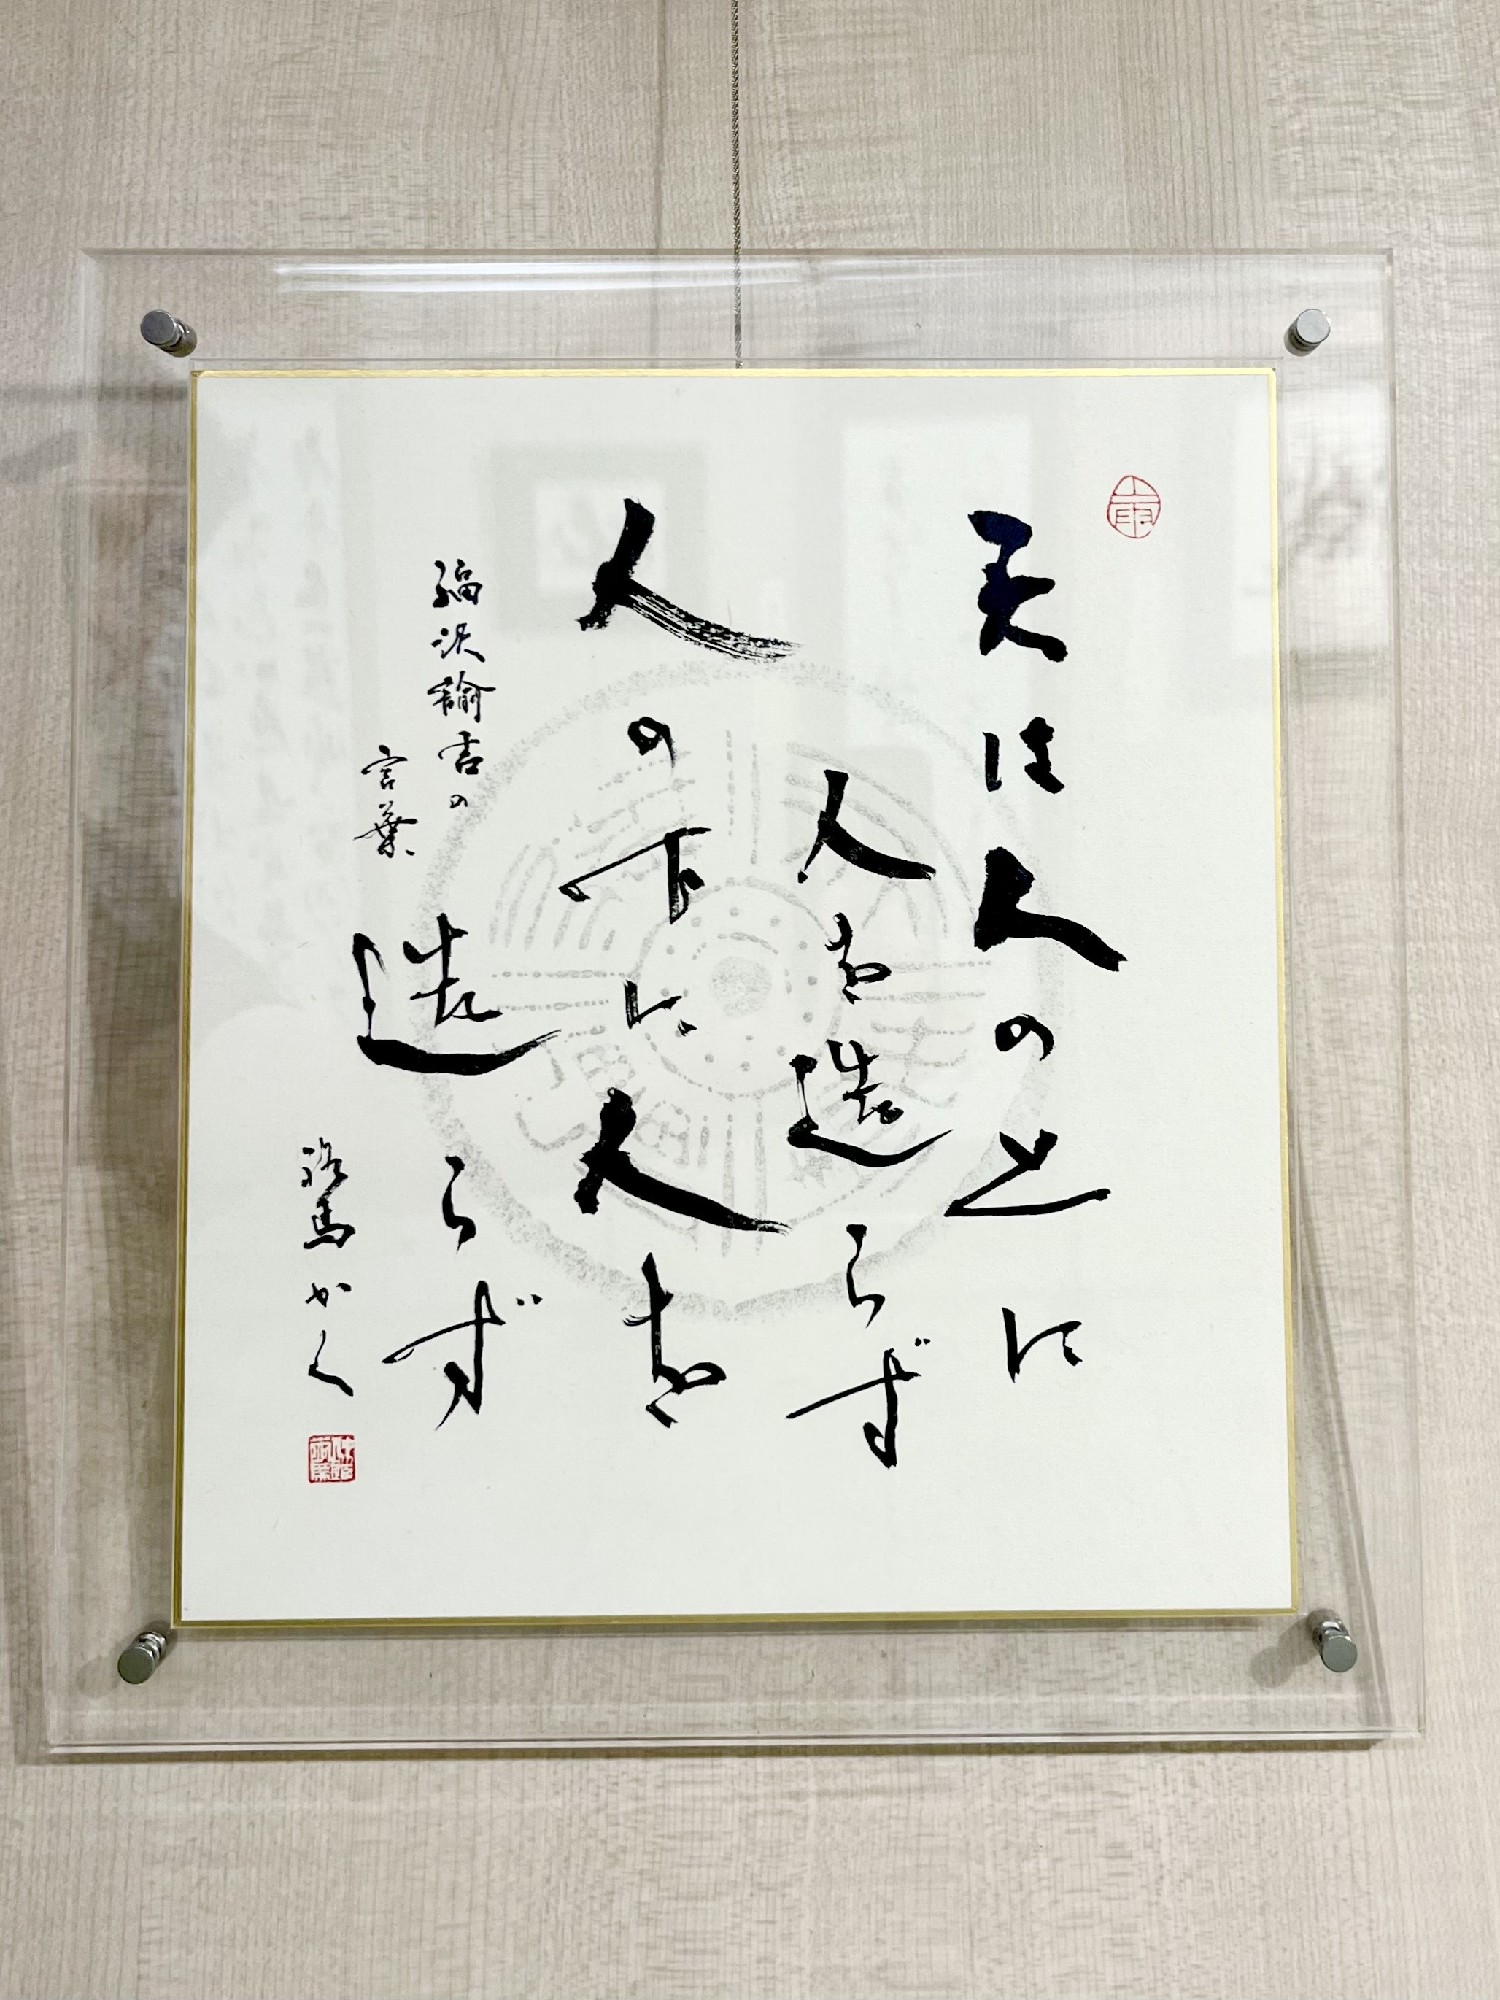 天は人の上に
人を造らず
人の下に人を
造らず
福沢諭吉の
言葉